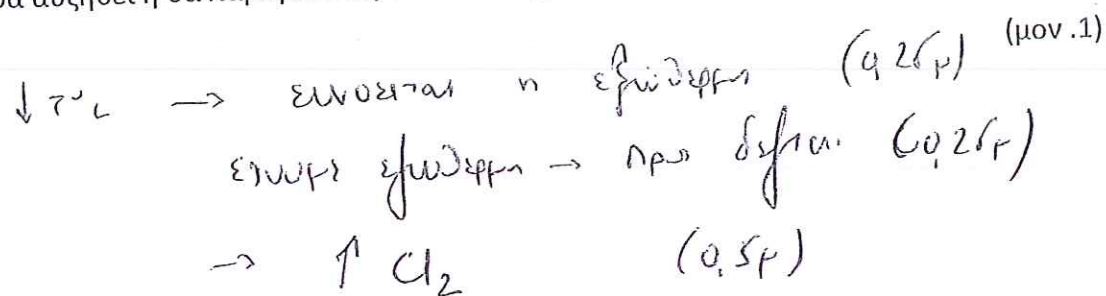 (μον .1)
↓ → ευνοειται η εξώθερμη (0,25μ)
εχουμε εξωθερμη → προς δεξια. (0,25μ)
→ ↑ Cl2 (0,5μ)